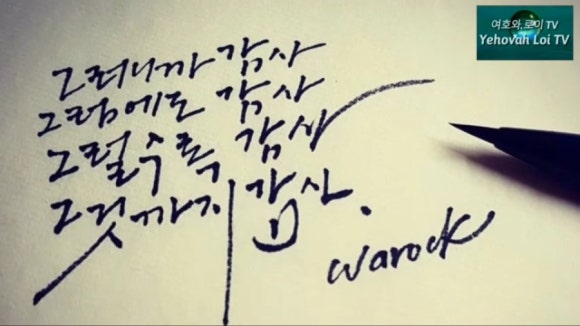 여호와.로이 TV
Yehovah Loi TV
그러니까 감사
그럼에도 감사
그럴수록 감사
그것까지 감사.
warock